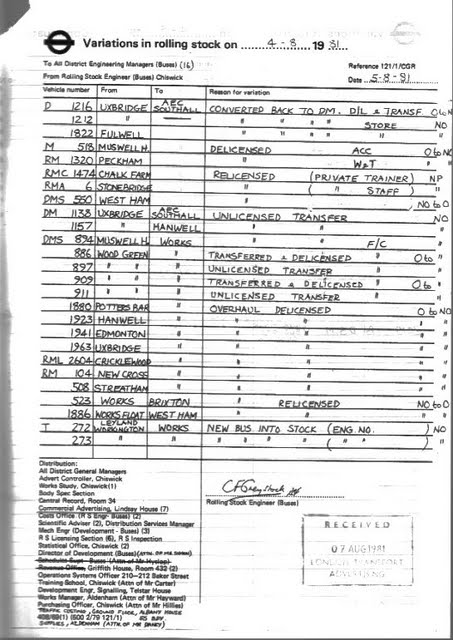 Variations in rolling stock on 4-8 1981
To All District Engineering Managers (Buses) (16)
Reference 121/1/CGR
From Rolling Stock Engineer (Buses) Chiswick
Date 5-8-81
Vehicle number From To Reason for variation
D 1216 UXBRIDGE AEC SOUTHALL CONVERTED BACK TO DM. D/L & TRANSF. O to N
1212 " — " " " STORE NO
1822 FULWELL " " " " NO
M 518 MUSWELL H. DELICENSED ACC O to NO
RM 1320 PECKHAM " W&T "
RMC 1474 CHALK FARM RELICENSED (PRIVATE TRAINER) NP
RMA 6 STONEBRIDGE " ( " STAFF ) "
DMS 550 WEST HAM " NO to O
DM 1138 UXBRIDGE AEC SOUTHALL UNLICENSED TRANSFER NO
1157 " HANWELL " " "
DMS 894 MUSWELL H. WORKS " " F/C "
886 WOOD GREEN " TRANSFERRED & DELICENSED " O to
897 " " " UNLICENSED TRANSFER "
909 " " " TRANSFERRED & DELICENSED " O to
911 " " " UNLICENSED TRANSFER "
1880 POTTERS BAR " OVERHAUL DELICENSED O to NO
1923 HANWELL " " " "
1941 EDMONTON " " " "
1963 UXBRIDGE " " " "
RML 2604 CRICKLEWOOD " " " "
RM 104 NEW CROSS " " " "
508 STREATHAM " " " "
523 WORKS BRIXTON " RELICENSED NO to O
1886 WORKS FLOAT WEST HAM " " "
T 272 LEYLAND WORKINGTON WORKS NEW BUS INTO STOCK (ENG. NO. ) NO
273 " " " " " " ( " " ) "
Distribution:
All District General Managers
Advert Controller, Chiswick
Works Study, Chiswick (1)
Body Spec Section
Central Record, Room 34
Commercial Advertising, Lindsay House (7)
Costs Office (R S Engr- Buses) (2)
Scientific Adviser (2), Distribution Services Manager
Mech Engr (Development - Buses) (3)
R S Licensing Section (6), R S Inspection
Statistical Office, Chiswick (2)
Director of Development (Buses)
Schedules Supt - Buses (Attn of Mr Hyslop)
Revenue Office, Griffith House, Room 432 (2)
Operations Systems Officer 210-212 Baker Street
Training School, Chiswick (Attn of Mr Carter)
Development Engr, Signalling, Telstar House
Works Manager, Aldenham (Attn of Mr Hayward)
Purchasing Officer, Chiswick (Attn of Mr Hillies)
TRAFFIC COSTING, GROUND FLOOR, ALBANY HOUSE
408/69(1) (500 2/79 121/1)
SUPPLIES, ALDENHAM
Rolling Stock Engineer (Buses)
RECEIVED
07 AUG 1981
LONDON TRANSPORT
ADVERTISING